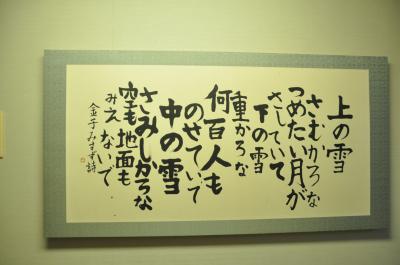 上の雪
さむかろな
つめたい月が
さしていて
下の雪
重かろな
何百人も
のせていて
中の雪
さみしかろな
空も地面も
みえないで
金子みすず詩